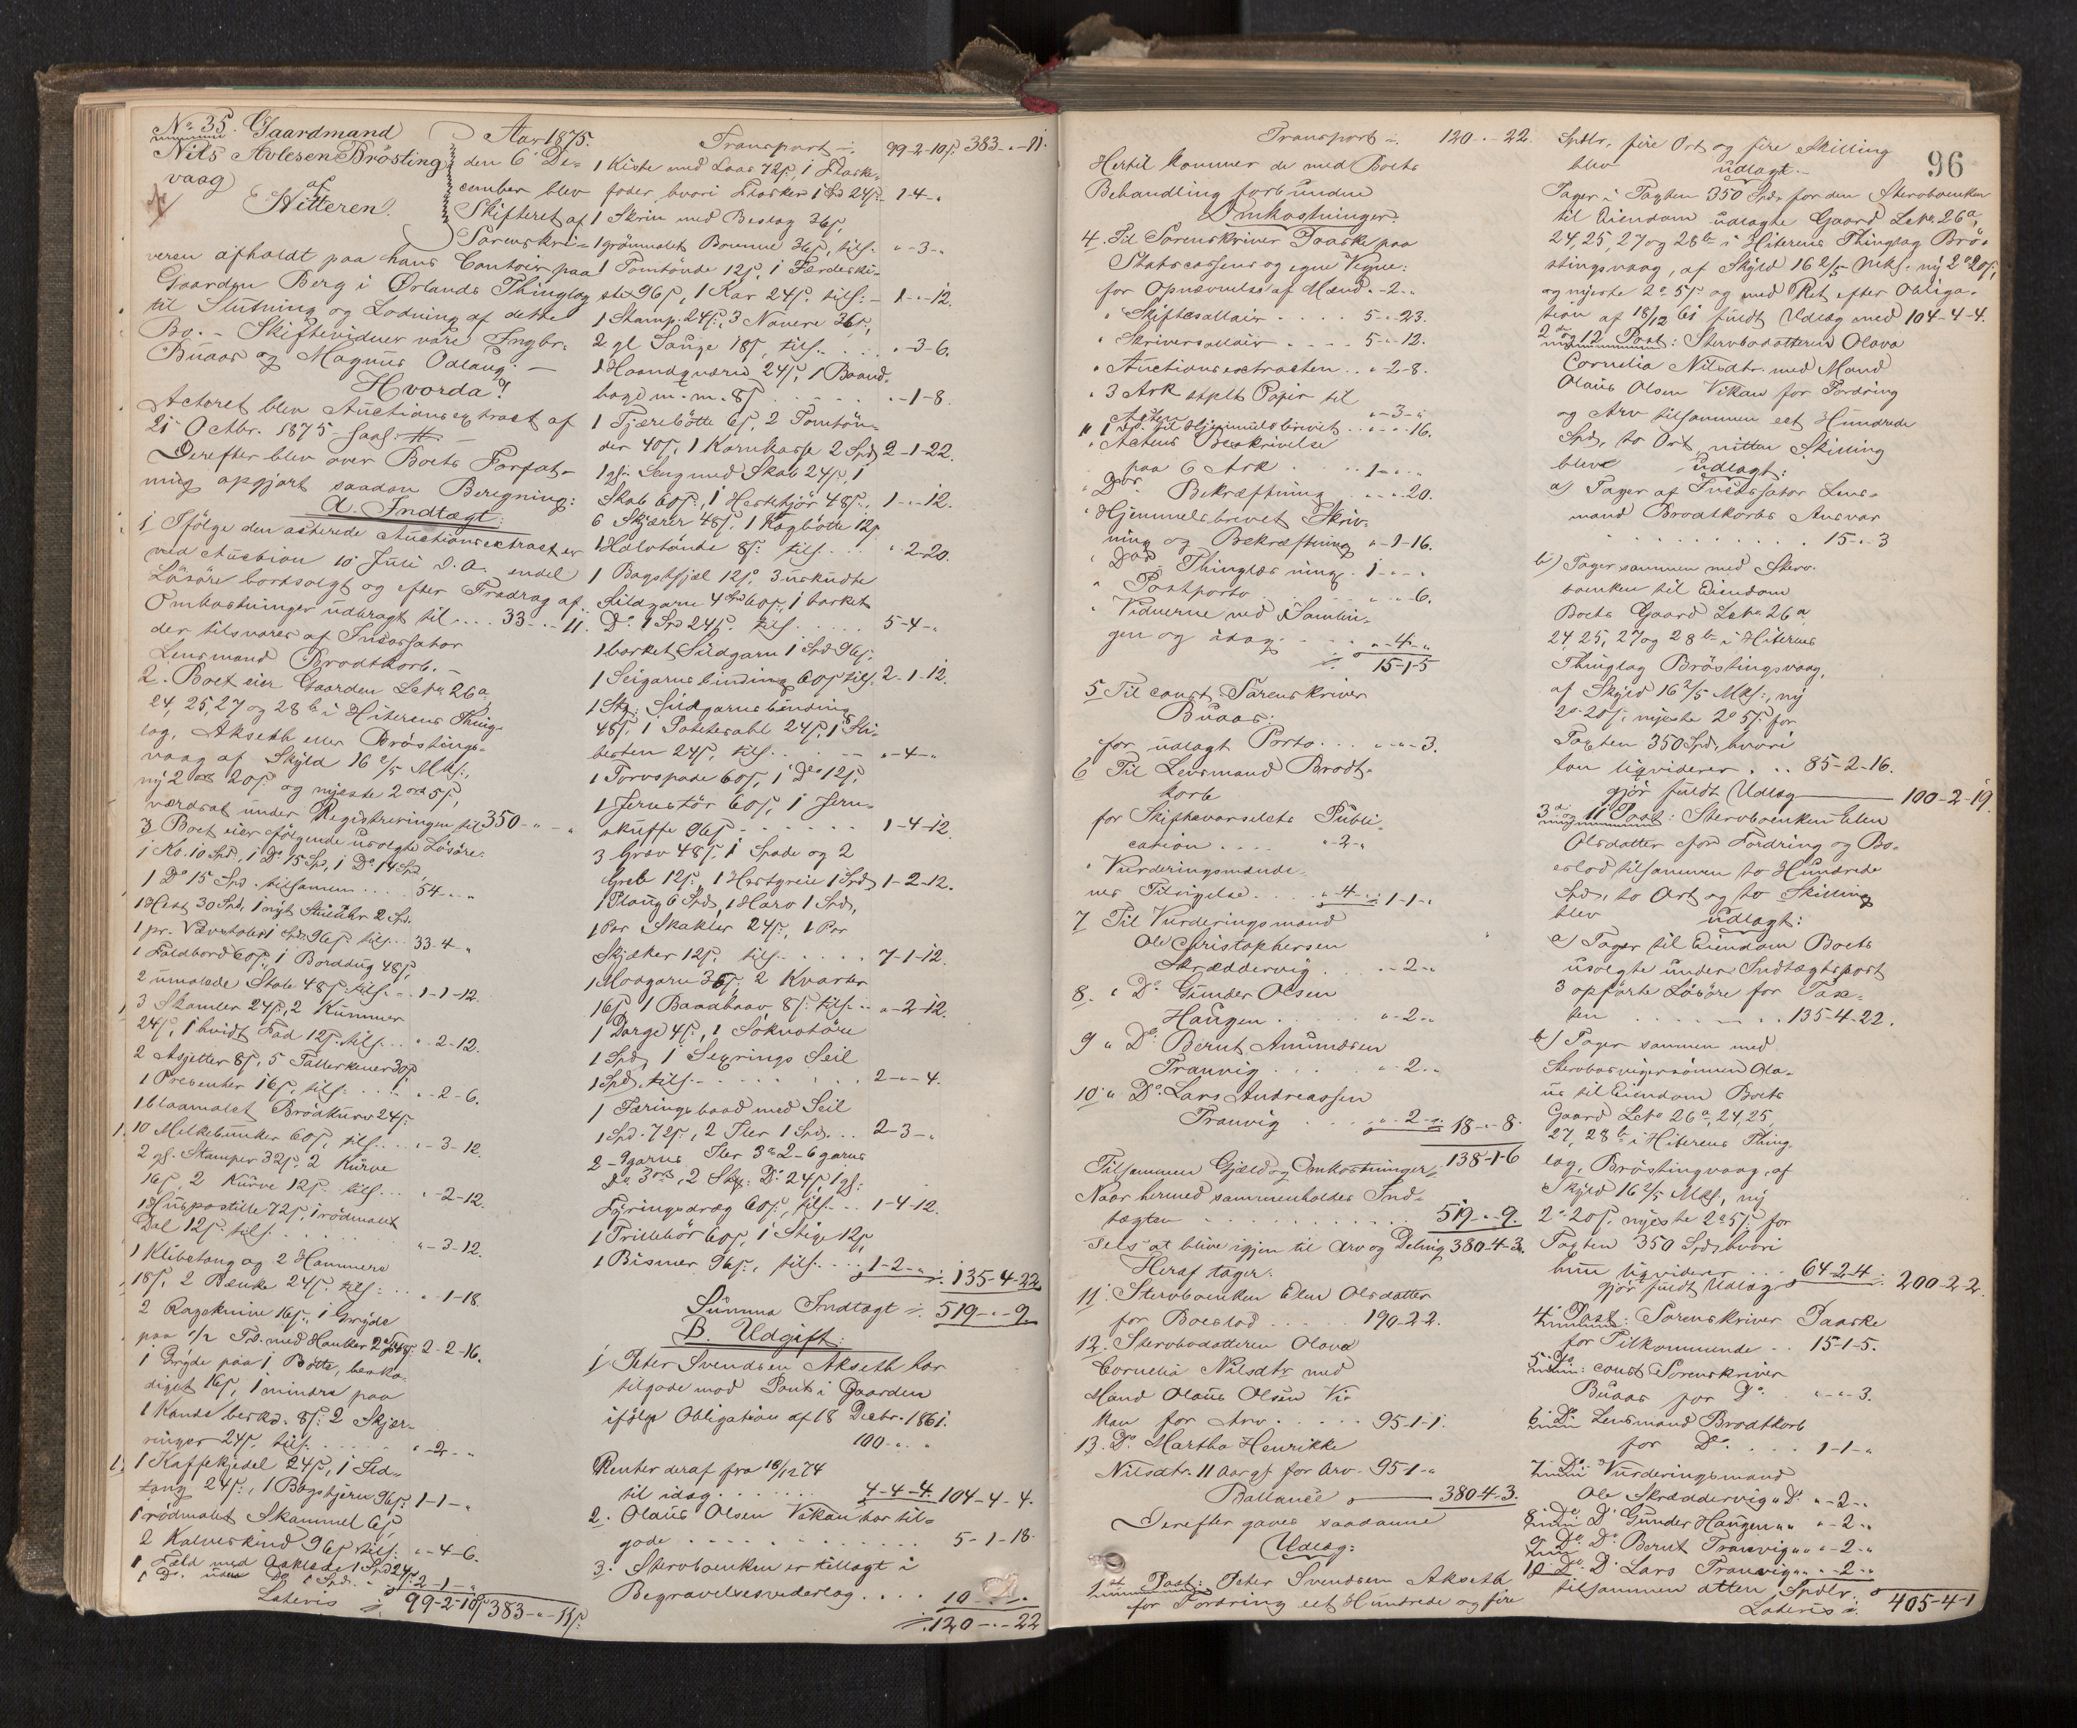 No 35. Gaardmand
Nils Avlesen Brösting
vaag
af
Hitteren.
Aar 1875.
den 6 De-
cember blev
Skifteret af
Sorenskri-
veren afholdt paa hans Contoir paa
Gaarden Berg i Ørlands Thinglag
til Slutning og Lodning af dette
Bo. – Skiftevidner vare Ingbr.
Buaas og Magnus Odlaug. –
Hvorda!
Acteret blev Auctionsextract af
21 Octbr. 1875 saal:
Derefter blev over Boets Forfat-
ning opgjort saadan Beregning:
A. Indtægt:
1 Ifölge den acterede Auctionsextract er
ved Auction 10 Juli d. A. endel
Lösöre bortsolgt og efter Fradrag af
Omkostninger udbragt til .... 33 - „ - 11.
der tilsvares af Incassator
Lensmand Brodtkorb. –
2. Boet eier Gaarden Lebn 26a,
24, 25, 27 og 28b i Hiterens Thing-
lag, Akseth eller Bröstings-
vaag af Skyld 16 2/5 Mkl.,
ny 2 ort 20 s. og nyeste 2 ort 5 s.,
værdsat under Registreringen til 350 - „ - „
3 Boet eier følgende usolgte Lösöre:
1 Ko. 10 Spd, 1 Do 15 Spd, 1 Do 14 Spd,
1 Do 15 Spd. tilsammen .... 54 - „ - „
1 Hest 30 Spd, 1 nyt Stueuhr 2 Spd.
1 pr. Vævstoler 1 Spd. 96 s. tils .. 33 - 4 - „
1 Foldbord 60 s., 1 Borddug 48 s.,
2 umalede Stole 48 s. tils. .. 1 - 1 - 12.
3 Skamler 24 s., 2 Kummer
24 s., 1 hvidt Fad 12 s. tils. ... „ - 2 - 12.
2 Asjetter 8 s., 5 Tallerkener 30 s
1 Presenter 16 s., tils. .... „ - 2 - 6.
1 blaamalet Brödkurv 24 s.
10 Melkebunker 60 s., tils. ... „ - 3 - 12.
2 gl. Stamper 32 s., 2 Kurve
16 s, 2 Kurve 12 s. tils. ... „ - 2 - 12.
1 Huspostille 72 s., 1 rödmalet
Dal 12 s. tils. ..... „ - 3 - 12.
1 Klibetang og 2 Hammere
18 s., 2 Bænke 24 s. tils. ... „ - 1 - 18.
2 Rageknive 16 s., 1 Gryde
paa 1/2 Td. med Hanker 2 Spd 48 s. 2 - 2 - 16.
1 Gryde paa 1 Bötte, beska-
diget 16 s., 1 mindre paa
1 Kande beskd. 8 s. 2 Skjær-
ringer 24 s. tils. ..... „ - 2 - „
1 Kaffekjedel 24 s., 1 Ild-
tang 24 s., 1 Bagstjern 96 s. 1 - 1 - „
1 rödmalet Skammel 6 s.
2 Kalveskind 96 s. tils. .. „ - 4 - 6.
1 Fæld med Aaklæde 1 Spd 24 s.
1 Do. uden Do 1 Spd. .. 2 - 1 - „
Lateris ./. 99 - 2 - 10 s. 383 - „ - 11 s.
Transport ./. 99 - 2 - 10 s. 383 - „ - 11.
1 Kiste med Laas 72 s., 1 Flaske-
foder, hvori Flasker 1 Spd 24 s. - 1 - 4 - „
1 Skrin med Beslag 36 s.
1 grönmalet Bomme 36 s., tils. „ - 3 - „
1 Tomtönde 12 s., 1 Færdeski-
ste 96 s., 1 Kar 24 s. tils: - 1 - „ - 12.
1 Stamp. 24 s., 3 Navere 36 s.,
2 gl Sauge 18 s, tils. .... „ - 3 - 6.
1 Haandqværn 24 s., 1 Baand-
bage m. m. 8 s. ..... „ - 1 - 8.
1 Tjærebötte 6 s, 2 Tomtön-
der 40 s., 1 Kornkasse 2 Spd 2 - 1 - 22.
1 gl. Seng med Skab 24 s., 1
Skab 60 s., 1 Hestekjör 48 s., 1 - „ - 12.
6 Skjærer 48 s. 1 Kagbötte 12 s
1 Halvtönde 8 s. tils. ... „ 2 - 20.
1 Bagstfjæl 12 s. 3 uskudte
Sildgarn 4 Spd 60 s., 1 barket
Do 1 Spd 24 s. tils. ..... 5 - 4 - „
1 barket Sildgarn 1 Spd. 96 s.
1 Seigarnsbinding 60 s tils. 2 - 1 - 12.
1 Stk. Sildgarnsbinding
48 s. 1 Potetesahl 24 s., 1 Sli-
besten 24 s., tils. ... „ - 4 - „
1 Torvspade 60 s, 1 Do 12 s.
1 Jernstör 60 s., 1 Jern-
skuffe 96 s. ....... 1 - 4 - 12.
3 Grev 48 s. 1 Spade og 2
Greb 12 s., 1 Hestgreie 1 Spd 1 - 2 - 12.
1 Plaug 6 Spd, 1 Harv 1 Spd,
1 Par Skakler 24 s., 1 Par
Skjæker 12 s. tils. .... 7 - 1 - 12.
1 Modgarn 36 s., 2 Kvarter
16 s, 1 Baadhaav 8 s. tils. .. „ - 2 - 12.
1 Dorge 4 s., 1 Soknetöu
1 Spd, 1 Sexrings Seil
1 Spd, tils. ........ 2 - „ - 4.
1 Færingsbaad med Seil
1 Spd. 72 s., 2 Iler 1 Spd, ... 2 - 3 - „
2 - 9 garns Iler 3 o 2 - 6 garns
Do 3 ort, 2 Stk. Do 24 s, 1 gl.
Fyringsdræg 60 s., tils. ... 1 - 4 - 12.
1 Trillebör 60 s., 1 Stige 12 s,
1 Bismer 96 s., tils. .... 1 - 2 - „ ./. 135 - 4 - 22
Summa Indtægt ./. 519 - „ - 9.
B. Udgift:
1 Peter Svendsen Akseth har
tilgode mod Pant i Gaarden
ifölge Obligation af 18 Decbr. 1861.
100 - „ - „
Renter deraf fra 18/12 74
til idag ....... 4 - 4 - 4. 104 - 4 - 4.
2. Olaus Olsen Vikan har til-
gode ........... 5 - 1 - 18.
3. Stervboenken er tillagt i
Begravelsesvederlag .... 10 - „ - „
./. 120 - „ - 22
96
Transport ./. 120 - „ - 22.
Hertil kommer de med Boets
Behandling forbundne
Omkostninger:
4. Til Sorenskriver Paaske paa
Statscassens og egne Vegne:
for Opnævnelse af Mænd. - 2 - „
„ Skiftesallair .... 5 - „ - 23.
„ Skriversallair .... 5 - „ - 12.
„ Auctionsextracten .. „ - 2 - 8.
„ 3 Ark stplt Papir til
Acten „ - 3 - „
„ 1 Do. til Hjemmelsbrevet .. „ - „ - 16.
„ Actens Beskrivelse
paa 6 Ark .... 1 - „ - „
„ Ds Bekræftning .. „ - „ - 20.
„ Hjemmelsbrevet Skriv-
ning og Bekræftning „ - 1 - 16.
„ Dos Thinglæsning. 1 - „ - „
„ Postporto ..... „ - „ - 6.
„ Vidnerne ved Samlin-
gen og idag .... „ - 4 - „
./. 15 - 1 - 5
5 Til const. Sorenskriver
Buaas:
for udlagt Porto ... „ - „ - 3.
6 Til Lensmand Brodt-
korb
for Skiftevarselets Publi-
cation .... „ - 2 - „
„ Vurderingsmænde-
nes Tilsigelse .... „ - 4 - „ 1 - 1 - „
7 Til Vurderingsmand
Ole Christophersen
Skræddervig .... „ - 2 - „
8. „ Do. Gunder Olsen
Haugen ..... „ - 2 - „
9 „ Do. Bernt Amundsen
Tranvig ..... „ - 2 - „
10 „ Do. Lars Andreassen
Tranvig .... „ - 2 - „ 18 - „ - 8.
Tilsammen Gjæld og Omkostninger ./. 138 - 1 - 6
Naar hermed sammenholdes Ind-
tægten .......... 519 - „ - 9.
sees at blive igjen til Arv og Deling 380 - 4 - 3.
Heraf tager:
11. Stervboenken Elen Olsdatter
for Boeslod ..... 190 - 2 - 2.
12. Stervbodatteren Olava
Cornelia Nilsdtr med
Mand Olaus Olsen Vi-
kan for Arv ..... 95 - 1 - 1.
13. Do. Martha Henrikke
Nilsdtr. 11 Aar gl. for Arv. 95 - 1 - „
Ballance ./. 380 - 4 - 3.
Derefter gaves saadanne
Udlæg:
1st Post: Peter Svendsen Akseth
for Fordring eet Hundrede og fire
Spdlr. fire Ort og fire Skilling
blev udlagt. –
Tager i Taxten 350 Spd. for den Stervboenken
til Eiendom udlagte Gaard Lebn. 26a,
24, 25, 27 og 28b i Hiterens Thinglag Brö-
stingsvaag, af Skyld 16 2/5 Mkl. ny 2 o 20 s,
og nyeste 2 o 5 s og med Ret efter Obliga-
tion af 18/12 61 fuldt Udlæg med 104 - 4 - 4.
2den og 12 Post: Stervbodatteren Olava
Cornelia Nilsdtr. med Mand
Olaus Olsen Vikan for Fordring
og Arv tilsammen eet Hundrede
Spd., to Ort nitten Skilling
bleve udlagt:
a) Tager af Incassator Lens-
mand Brodtkorbs Ansvar
......... 15 - „ - 3
b) Tager sammen med Stervboenken til Eiendom
Boets Gaard Lebn 26a
24, 25, 27 og 28b i Hiterens
Thinglag Bröstingsvaag,
af Skyld 16 2/5 Mkl., ny
2 o 20 s., nyeste 2 o 5 s. for
Taxten 350 Spd, hvori
han liqviderer ... 85 - 2 - 16.
gjör fuldt Udlæg 100 - 2 - 19.
3die og 11 Post: Stervboenken Elen
Olsdatter for Fordring og Bo-
eslod tilsammen to Hundrede
Spd, to Ort og to Skilling
blev udlagt:
a) Tager til Eiendom Boets
usolgte under Indtægtspost
3 opförte Lösöre for Tax-
ten ....... 135 - 4 - 22.
b) Tager sammen med
Stervbosvigersönnen Ola-
us til Eiendom Boets
Gaard Lebn 26a, 24, 25,
27, 28b i Hiterens Thing-
lag, Bröstingvaag, af
Skyld 16 2/5 Mkl., ny
2 o 20 s. nyeste 2 o 5 s. for
Taxten 350 Spd, hvori
hun liqviderer ... 64 - 2 - 4.
gjör fuldt Udlæg 200 - 2 - 2.
4. Post: Sorenskriver Paaske
for Tilkommende .. 15 - 1 - 5.
5. Do: const. Sorenskriver
Buaas for Do. .. „ - „ - 3.
6. Do Lensmand Brodtkorb
for Do. .... 1 - 1 - „
7. Do Vurderingsmand
Ole Skræddervig „ D. „ - 2 - „
8. Do D. Gunder Haugen „ „ „ - 2 - „
9. Do D. Bernt Tranvig „ „ „ - 2 - „
10. D. D. Lars Tranvig „ „ „ - 2 - „
tilsammen atten Spdlr.
Lateris ./. 405 - 4 - 1